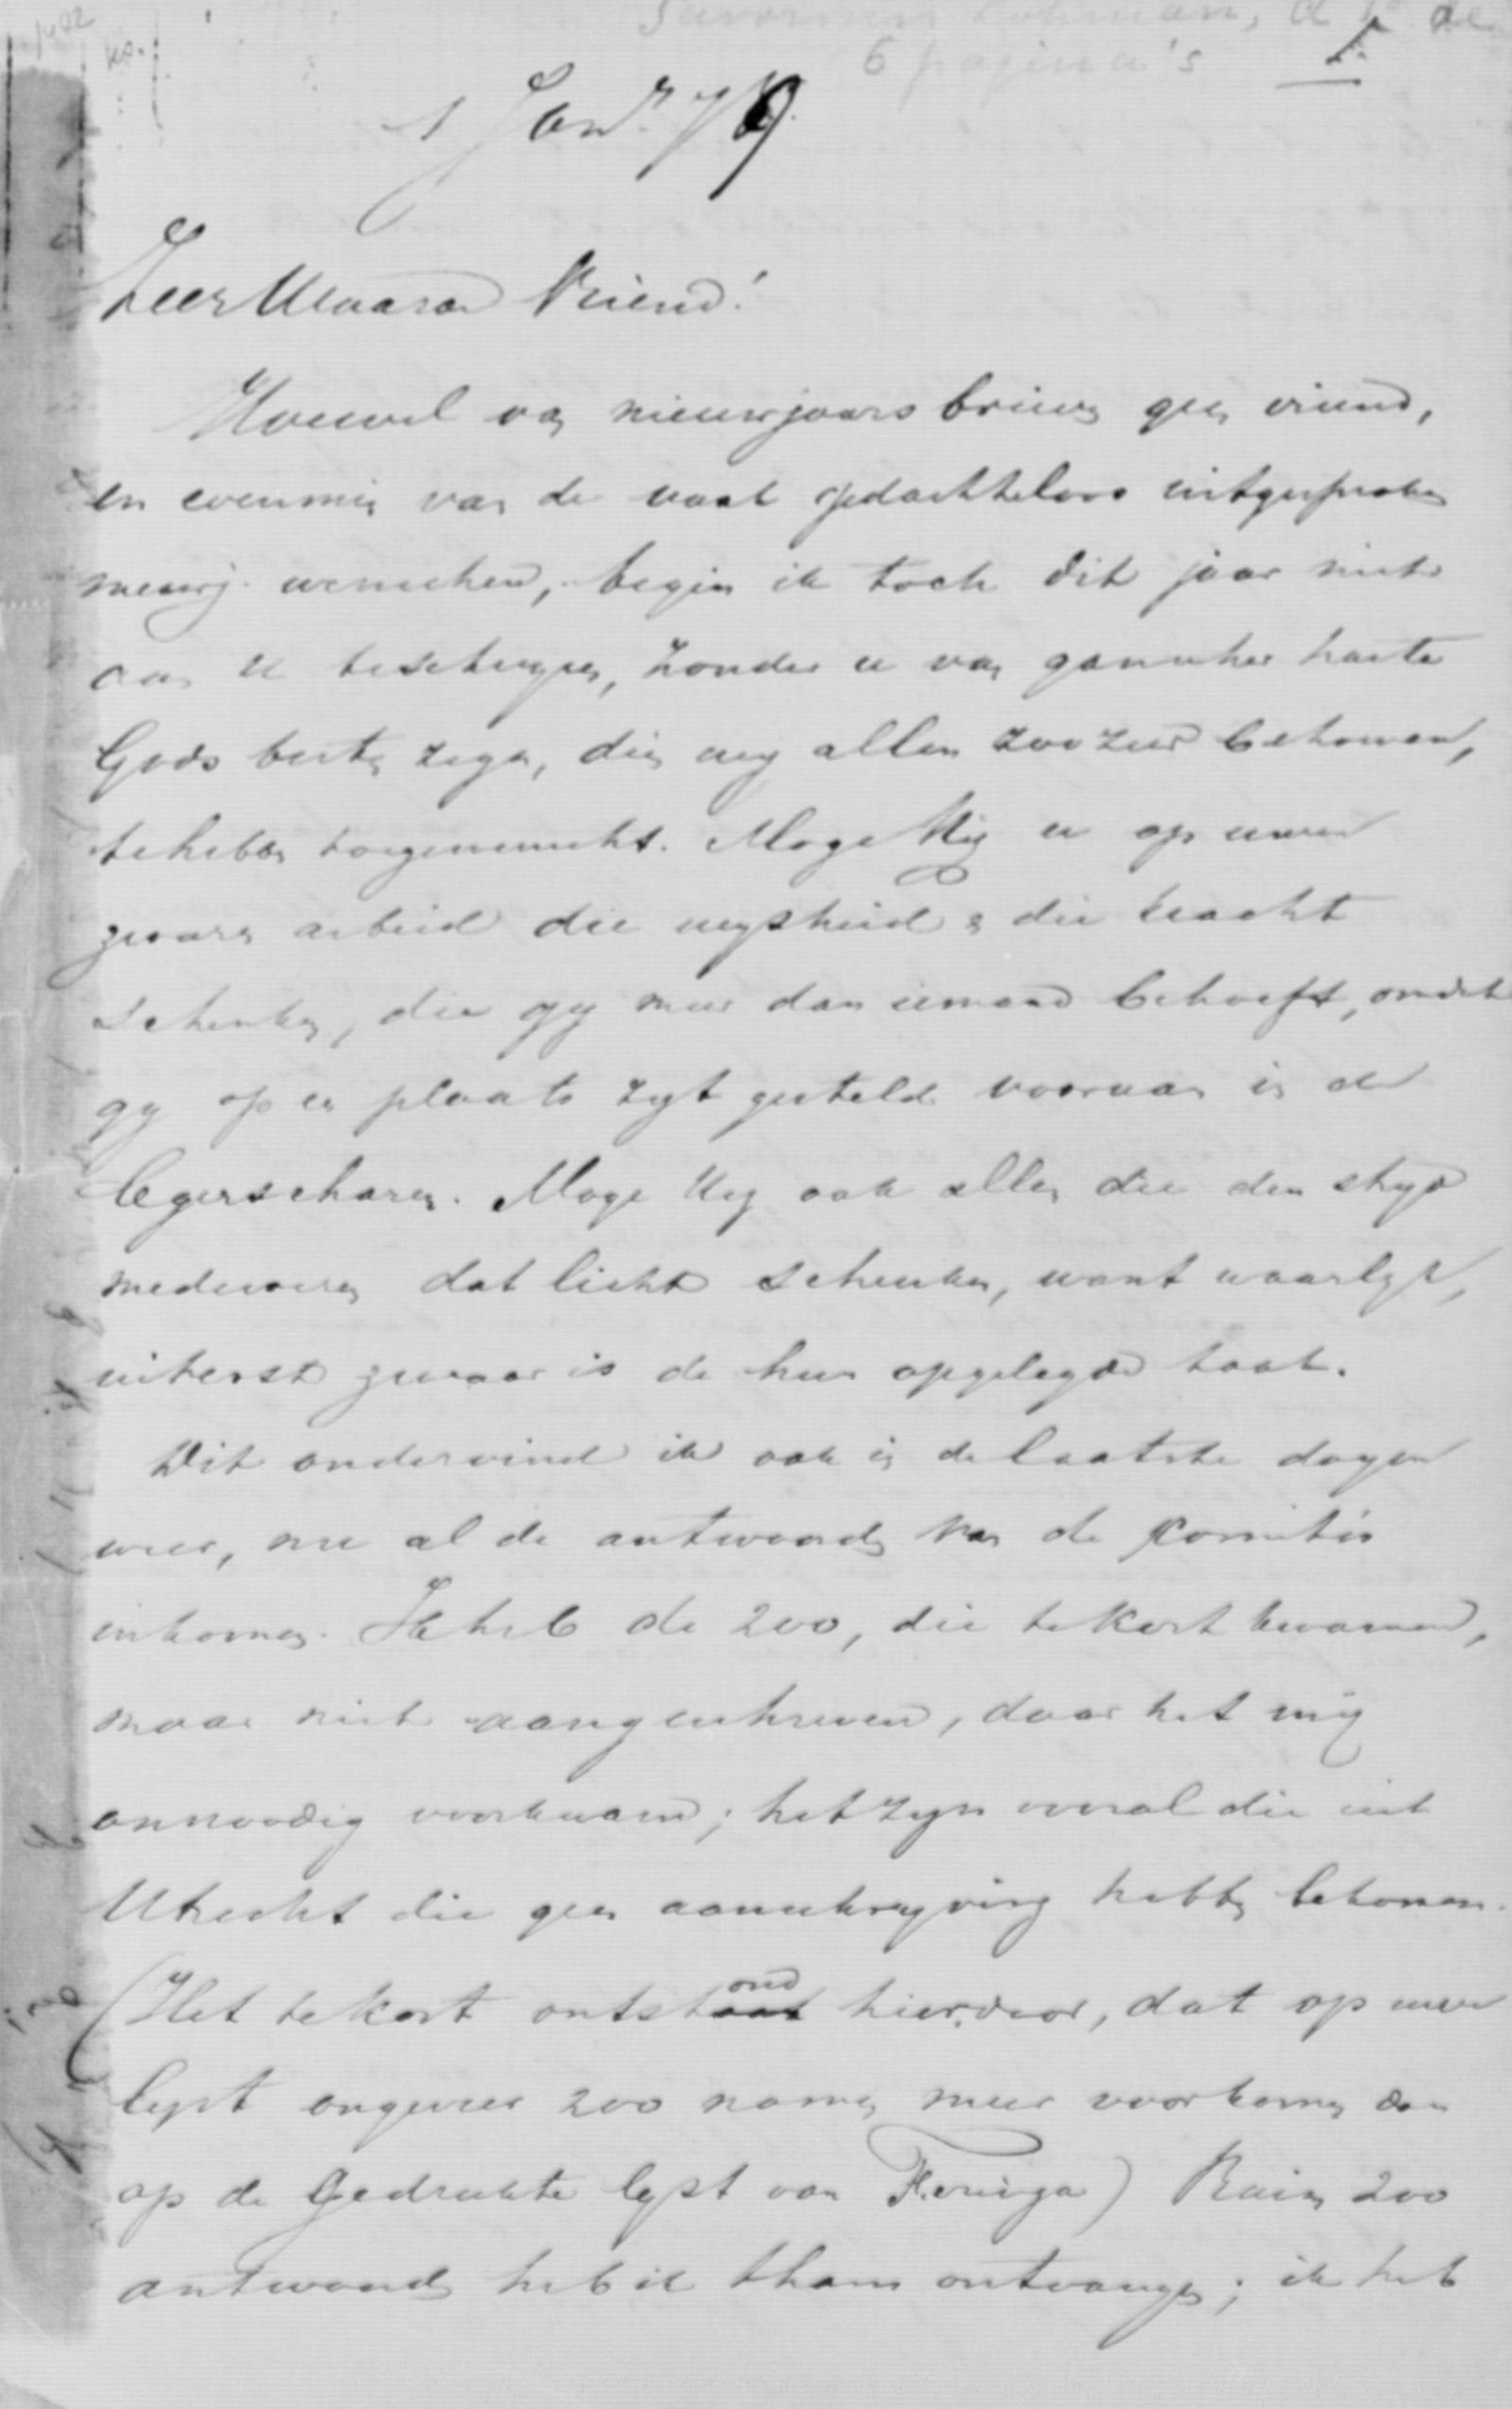 Savornin Lohman, a f de
6 pagina's I.
1 Jan. 79.
Zeer Waarde Vriend!
Hoewel van nieuwjaarsbrieven geen vriend,
en evenmin van de vaak gedachteloos uitgesproken
nieuwj. wenschen, begin ik toch dit jaar niet
aan u te schryven, zonder u van ganscher harte
Gods besten zegen, dien wy allen zoozeer behoeven,
te hebben toegewenscht. Moge Hij u op uwen
zwaren arbeid die wysheid & die kracht
schenken, die gy meer dan iemand behoeft, omdat
gy op en plaats zyt gesteld vooraan in de
legerscharen. Moge Hij ook allen die den stryd
medevoeren dat licht schenken, want waarlyk,
uiterst zwaar is de hun opgelegde taak.
Dit ondervind ik ook in de laatste dagen
weer, nu al de antwoorden van de Comités
inkomen. Ik heb de 200, die te kort kwamen,
maar niet aangeschreven, daar het mij
onnoodig voorkwam; het zyn vooral die uit
Utrecht die geen aanschryving hebben bekomen.
(Het te kort ontstond hierdoor, dat op uwe
lyst ongeveer 200 namen meer voorkomen dan
op de gedrukte lyst van Feringa) Ruim 200
antwoorden heb ik thans ontvangen; ik heb